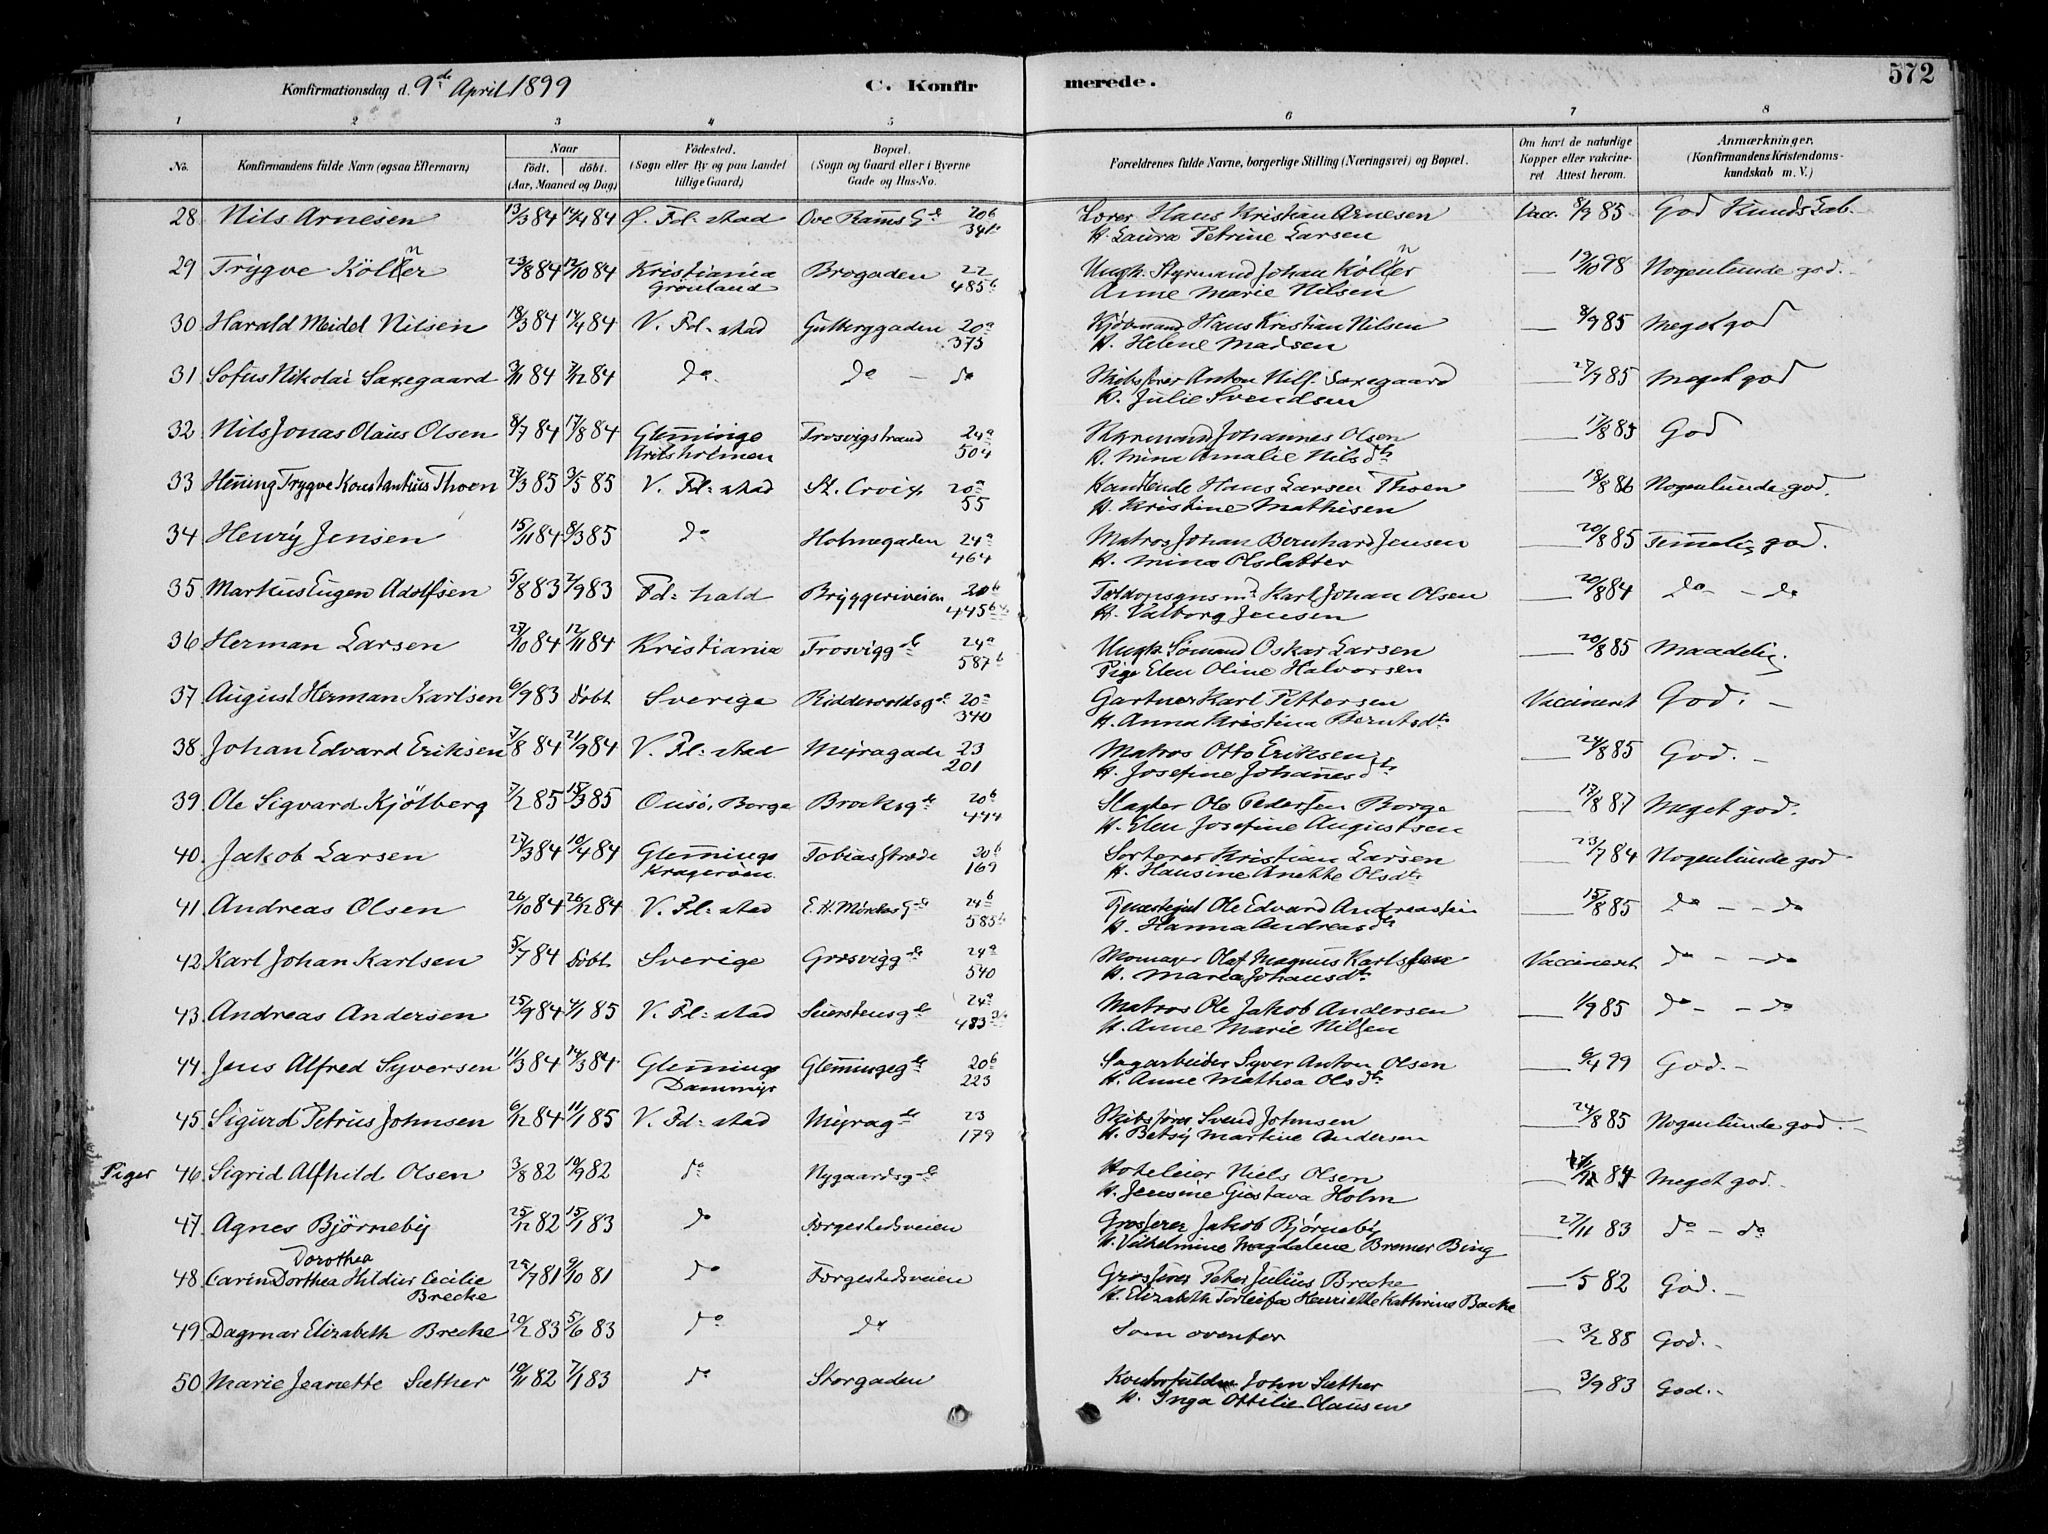 Konfirmationsdag d. 9de April 1899
C. Konfirmerede.
572
1 2 3 4 5 6 7 8
No. Konfirmandens fulde Navn (ogsaa Efternavn) Naar födt. döbt. (Aar, Maaned og Dag) Födested. (Sogn eller By og paa Landet tillige Gaard) Bopæl. (Sogn og Gaard eller i Byerne Gade og Hus-No. Forældrenes fulde Navne, borgerlige Stilling (Næringsvei) og Bopæl. Om havt de naturlige Kopper eller vaccineret Attest herom. Anmærkninger. (Konfirmandens Kristendomskundskab m. V.)
28 Nils Arnesen 13/3 84 14/4 84 Ø. Fd:stad Ove Rams Gd 20b Hans Kristian Arnesen Vacc. 8/9 85 God Kundskab.
H. Laura Petrine Larsen
29 Trygve Kölner 23/8 84 12/10 84 Kristiania Brogaden 22 Ungk. Styrmand Johan Kölner 19/10 98 Nogenlunde god.
Grönland 485b Anne Marie Nilsen
30 Harald Meidel Nilsen 18/3 84 14/4 84 V. Fd:stad Gulberggaden 20a Kjöbmand Hans Kristian Nilsen 8/9 85 Meget god
375 H. Helene Madsen
31 Sofus Nikolai Saxegaard 3/11 84 7/12 84 do do - do Skibsförer Anton Nilf. Saxegaard 27/7 85 Meget god
H. Julie Svendsen
32 Nils Jonas Olaus Olsen 8/7 84 17/8 84 Glemminge Trosvigstrand 24a Styrmand Johannes Olsen 17/8 85 God
504 H. Mina Amalie Nilsdtr
33 Henning Trygve Konstantius Thoen 27/3 85 3/5 85 V. Fd:stad St. Croix 20a Handlende Hans Larsen Thoen 18/8 86 Nogenlunde god.
55 H. Kristine Mathisen
34 Henry Jensen 15/11 84 8/3 85 do Holmegaden 24a Matros Johan Bernhard Jensen 20/8 85 Temmelig god.
464 H. Mina Olsdatter
35 Markus Eugen Adolfsen 5/8 83 2/9 83 Fd:hald Bryggeriveien 20b Toldopsynsmd Karl Johan Olsen 20/8 84 do - do
445b H. Valborg Jensen
36 Herman Larsen 27/10 84 12/11 84 Kristiania Trosvigg de 24a Ungk. Sömand Oskar Larsen 20/8 85 Maadelig.
587b Pige Elen Oline Halvorsen
37 August Herman Karlsen 6/9 83 Döbt Sverige Riddervoldsgd 20a Gartner Karl Pettersen Vaccineret God. -
340 H. Anna Kristina Berntsdtr
38 Johan Edvard Eriksen 3/8 84 21/9 84 V. Fd:stad Mejragade 23 Matros Otto Eriksen 24/8 85 God. -
201 H. Josefine Johannesdtr
39 Ole Sigvard Kjölberg 7/2 85 15/3 85 Onsö, Borge Brochsgde 20b Slagter Ole Pedersen Borge 17/8 87 Meget god.
444 H. Elen Josefine Augustsen
40. Jakob Larsen 27/3 84 10/4 84 Glemminge Tobiasstræde 20b Sorterer Kristian Larsen 23/7 84 Nogenlunde god
Krageröen 169 H. Hansine Anette Olsdtr
41. Andreas Olsen 26/10 84 26/12 84 V. Fd:stad E. H. Mörches Gde 24b Ole Edvard Andreassen 15/8 85 do - do
585b H. Hanna Andreasdtr
42. Karl Johan Karlsen 5/7 84 Döbt Sverige Grosvigg de 24a Skomager Olaf Magnus Karlsson Vaccineret do - do
540 H. Maria Johansdtr
43. Andreas Andersen 25/9 84 4/1 85 V. Fd:stad 24a Matros Ole Jakob Andersen 1/9 85 do - do
483 H. Anne Marie Nilsen
44. Jens Alfred Syversen 11/3 84 14/3 84 Glemminge Glemmingegde 20b Sagarbeider Syver Anton Olsen 6/4 99 God. -
Dammyr 223 H. Anne Mathea Olsdtr
45. Sigurd Petrus Johnsen 6/12 84 11/1 85 V. Fd:stad Mejragde 23 Skibsförer Svend Johnsen 24/8 85 Nogenlunde god. -
179 H. Betsy Martine Andersen
Piger 46. Sigrid Alfhild Olsen 3/8 82 10/9 82 do Nygaardsgde Hoteleier Niels Olsen 84 Meget god.
H. Jensine Gustava Holm
47. Agnes Björneby 25/12 82 15/1 83 do Færgestedsveien Grosserer Jakob Björneby 27/11 83 do - do
H. Vilhelmine Magdalene Bremer Bing
Dorothea
48. Carin Dorthea Hildur Cecilie 25/7 81 9/10 81 do Færgestedsveien Grosserer Peter Julius Brecke 1/5 82 God. -
Brecke H. Elizabeth Torleifa Henriette Kathrine Backe
49. Dagmar Elizabeth Brecke 20/2 83 5/6 83 do do Som ovenfor 3/2 88 God. -
50 Marie Jeanette Sæther 10/11 82 7/1 83 do Storgaden John Sæther 3/9 83 God. -
H. Inga Ottilie Clausen